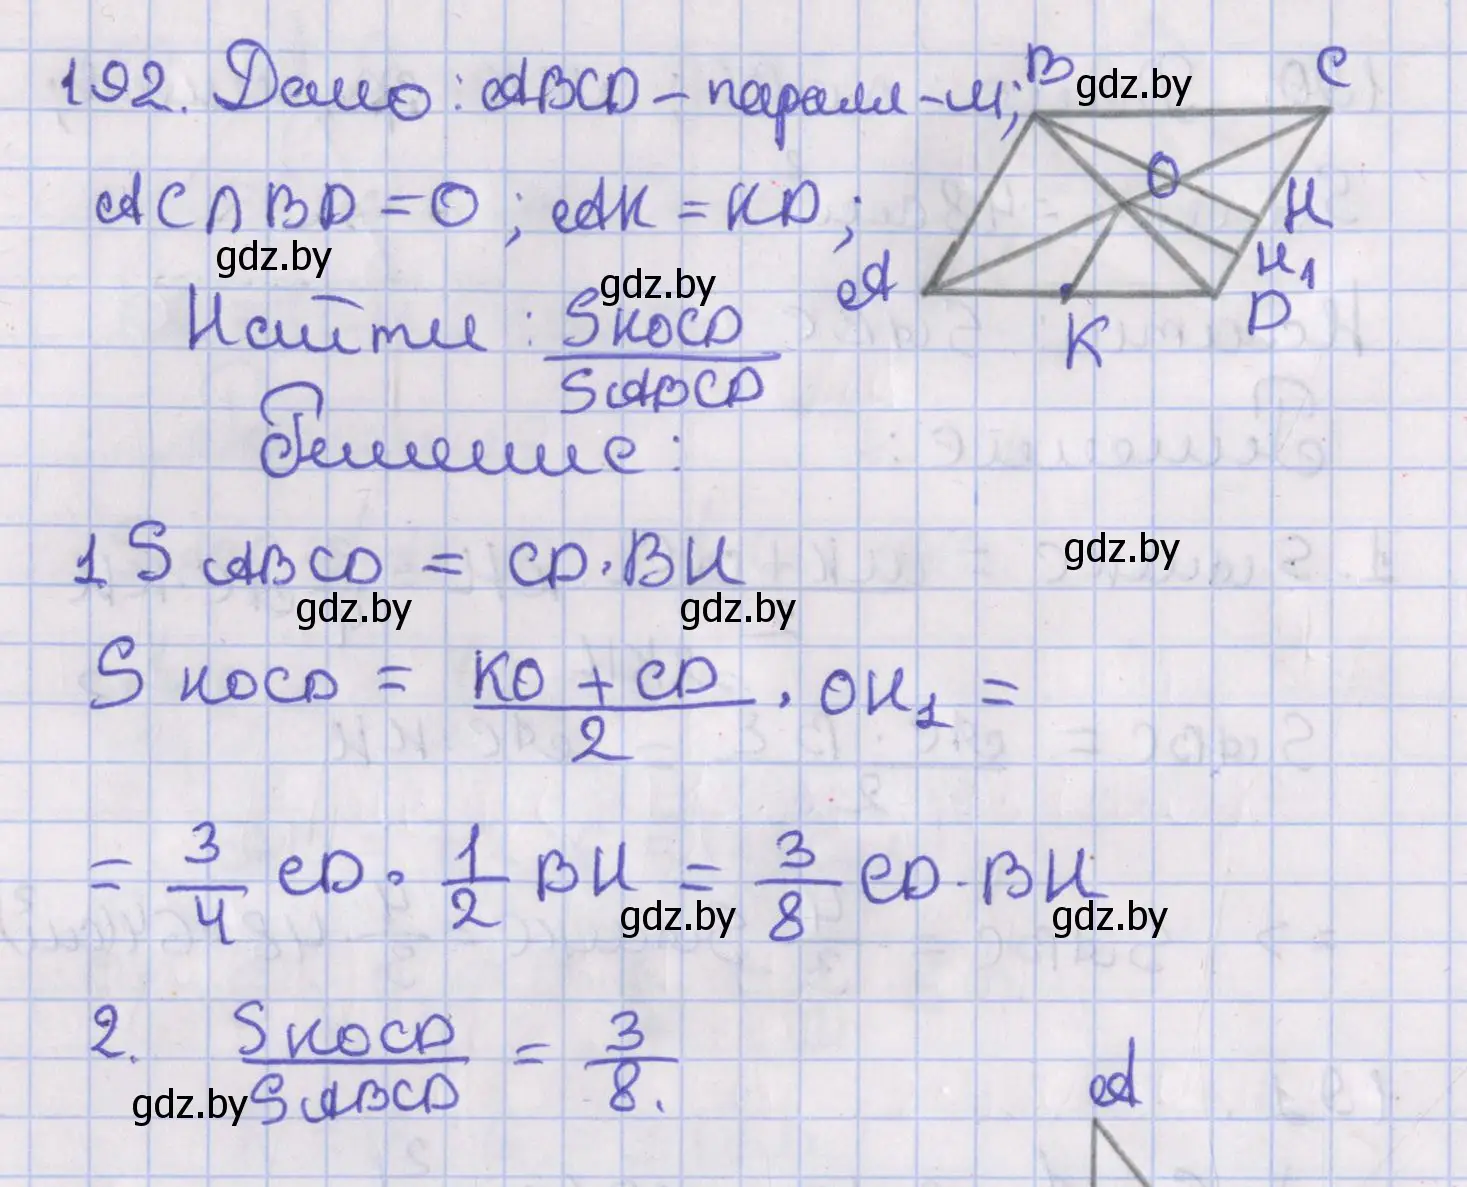 192. Дано: ABCD – паралл-м;
AC ∩ BD = O; AK = KD;
Найти: SKOCD / SABCD
Решение:
B
C
O
H
H1
A
K
D
1 SABCD = CD · BH
SKOCD = (KO + CD) / 2 · OH1 =
= 3/4 CD · 1/2 BH = 3/8 CD · BH
2. SKOCD / SABCD = 3/8.
A
gdz.by
gdz.by
gdz.by
gdz.by
gdz.by
gdz.by
gdz.by
gdz.by
gdz.by